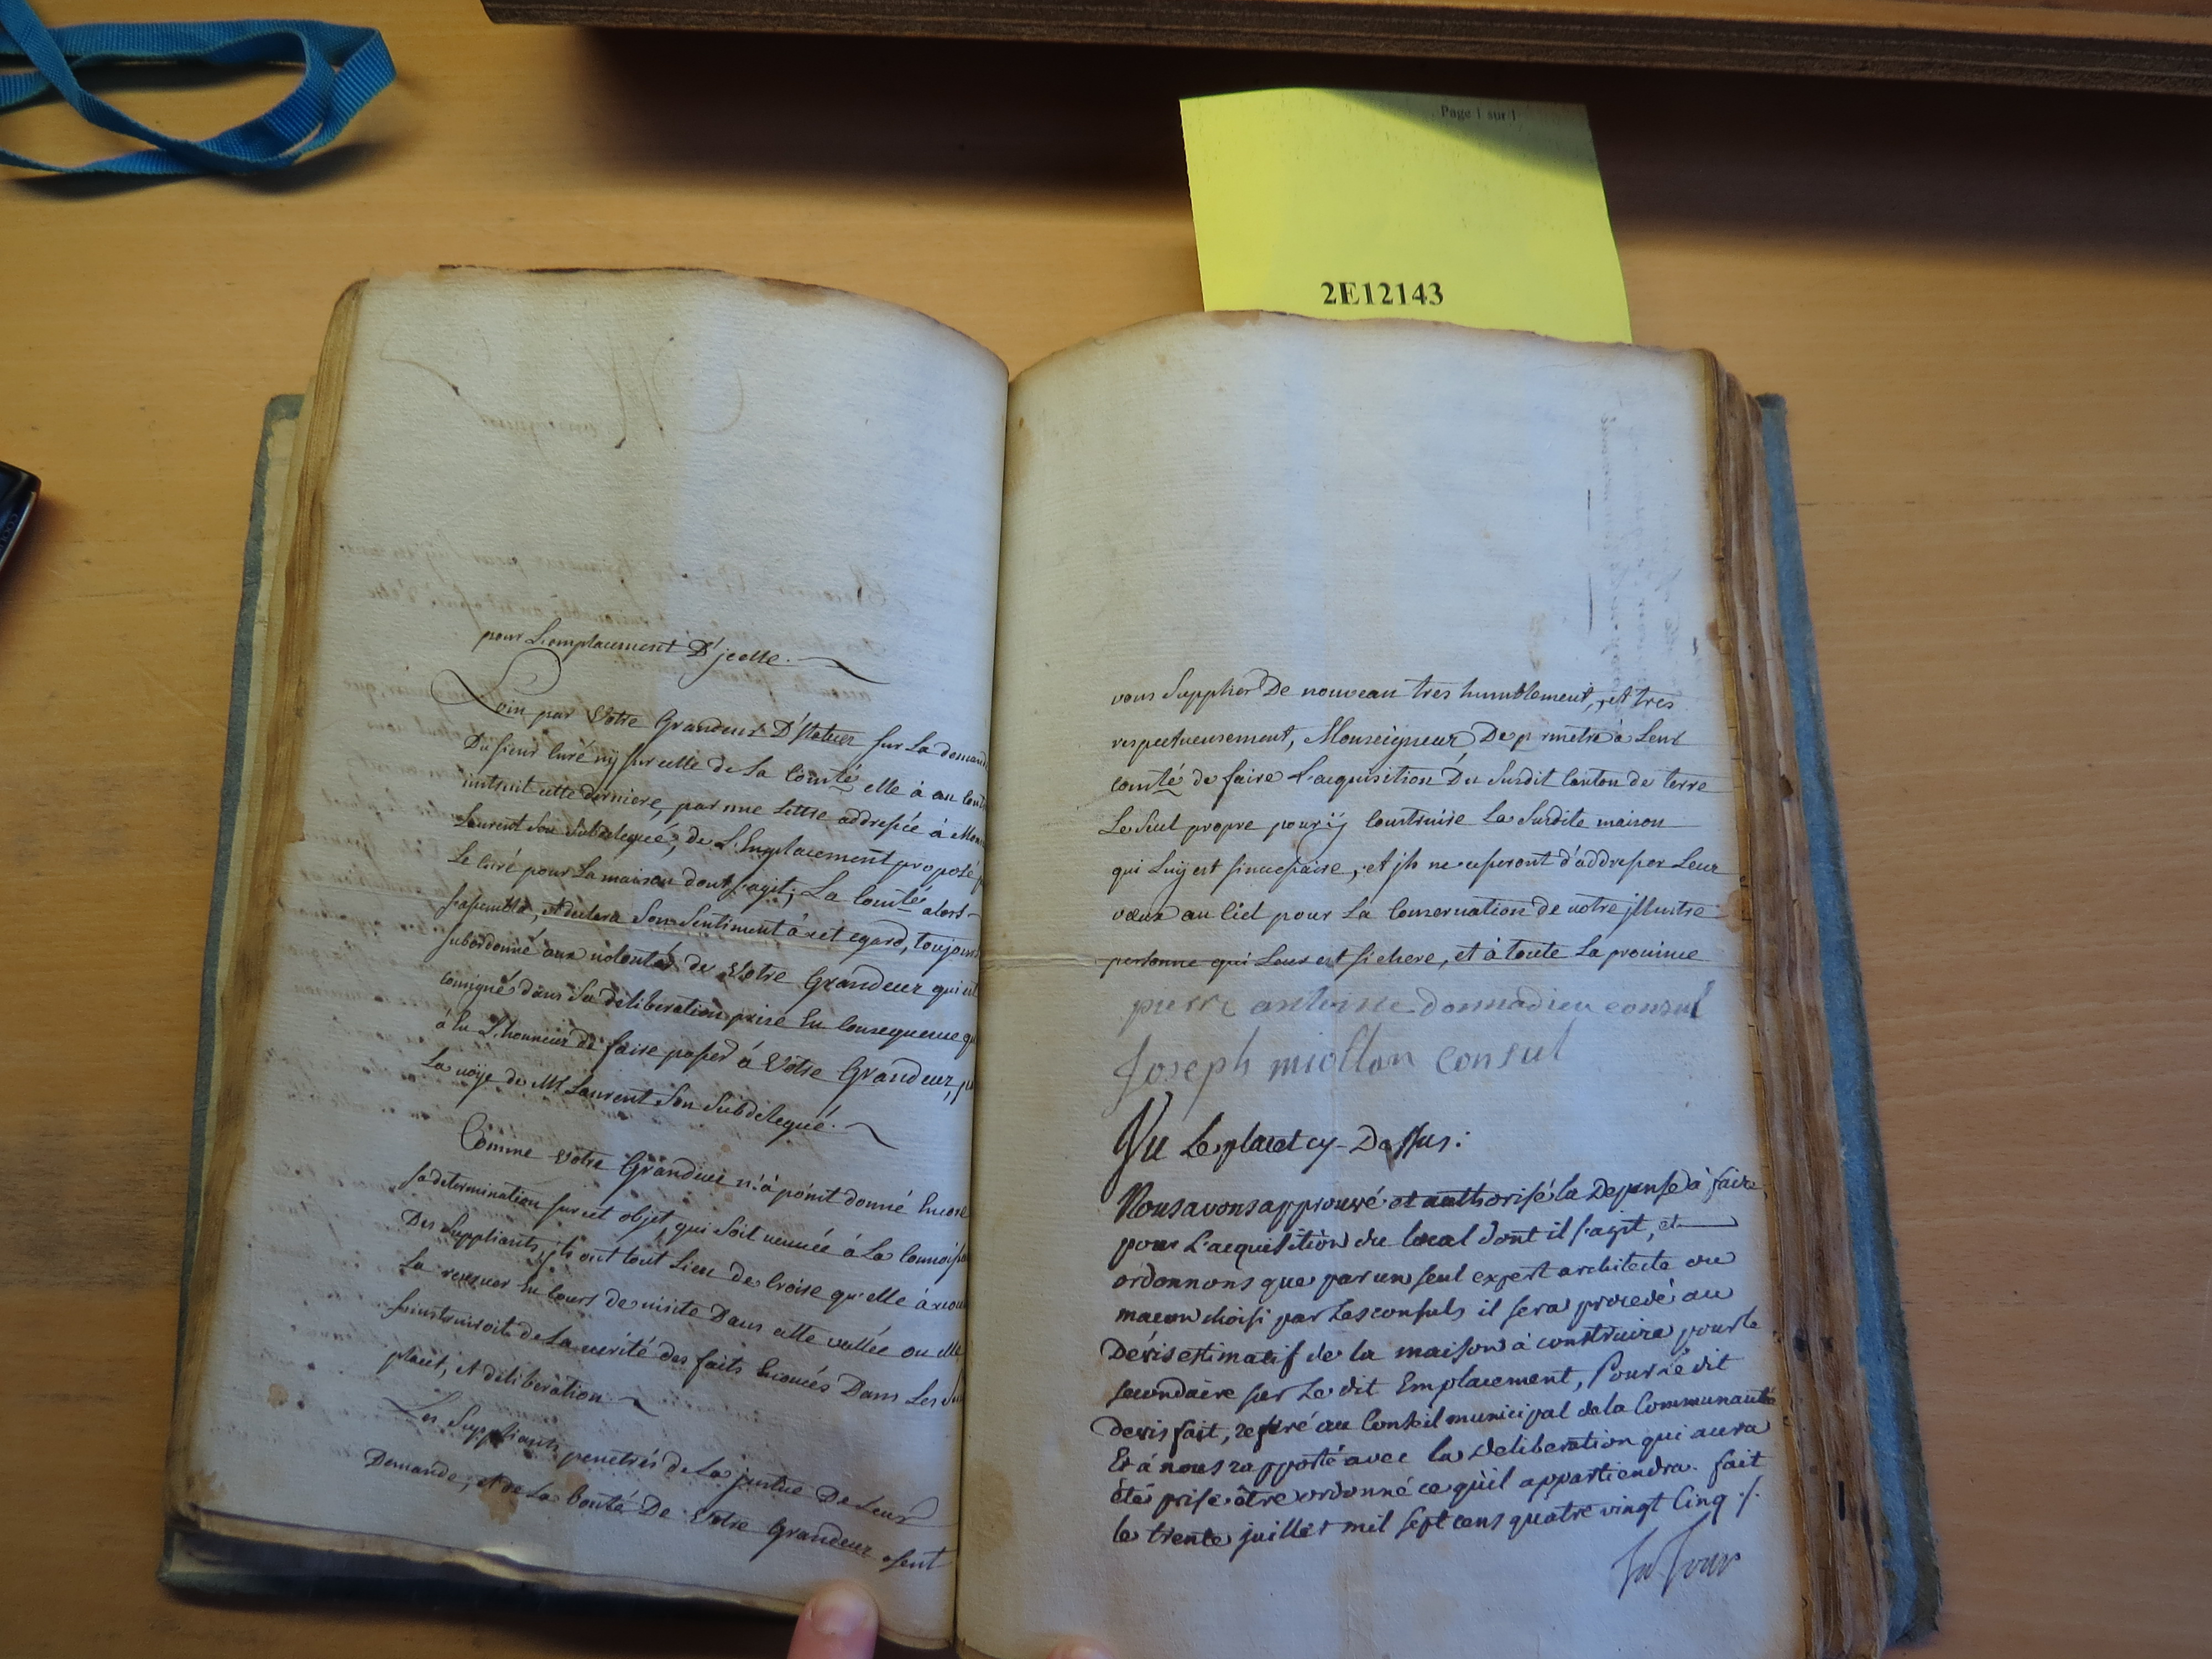 Page 1 sur 1
2E12143
pour L'emplacement D'jcelle.
Loin par Votre Grandeur D'statuer sur La demand
Du sieur Curé nÿ sur celle de La Comté elle à au cont
instruit cette derniere, par une Lettre addressée à Mons
Laurent son subdelegué, de L'Emplacement proposé p
Le Curé pour La maison dont s'agit; La Comté alors
s'assembla, et declara son sentiment à cet egard, toujours
subordonné aux volontés de Votre Grandeur qui est
consigné dans sa deliberation prise En consequence q
à Eu L'honneur de faire passer à Votre Grandeur, p
La voÿe de Mr Laurent son subdelegué.
Comme Votre Grandeur n'à point donné Encore
sa determination sur cet objet, qui soit venuëe à La connoiss
Des suppliants, jls ont tout Lieu de croire qu'elle à
La renvoer En cours de visite Dans cette vallée ou elle
s'instruiroit de La verité des faits Enoncés Dans Les
placet, et deliberation
Les suppliants penetrés de La justice De Leur
Demande, et de La bonté De Votre Grandeur osent
vous supplier De nouveau tres humblement, et tres
respectueusement, Monseigneur, De p rmetre à Leur
comté de faire L'acquisition Du susdit Canton de terre
Le seul propre pour ÿ Construire La susdite maison
qui Luÿ est sinecessaire, et jls ne cesseront d'addresser Leur
vœux au Ciel pour La Conservation de votre jllustre
personne qui Leur est si chere, et à toute La province
pierre antoine donnadieu consul
Joseph miollan consul
Vu Le placet cy-Dessus:
Nous avons approuvé et authorisé la Depense à faire
pour L'acquisition du local dont il s'agit, et
ordonnons que par un seul expert architecte ou
macon choisi par Les consuls il sera procedé au
Dévis estimatif de la maison à construire pour le
secondaire sur Le dit Emplacement, Pour lè dit
devis fait, referé au Conseil municipal de la Communauté
Et à nous rapporté avec la deliberation qui aura
été prise être ordonné ce qu'il appartiendra. fait
le trente juillet mil sept cens quatre vingt Cinq ./.